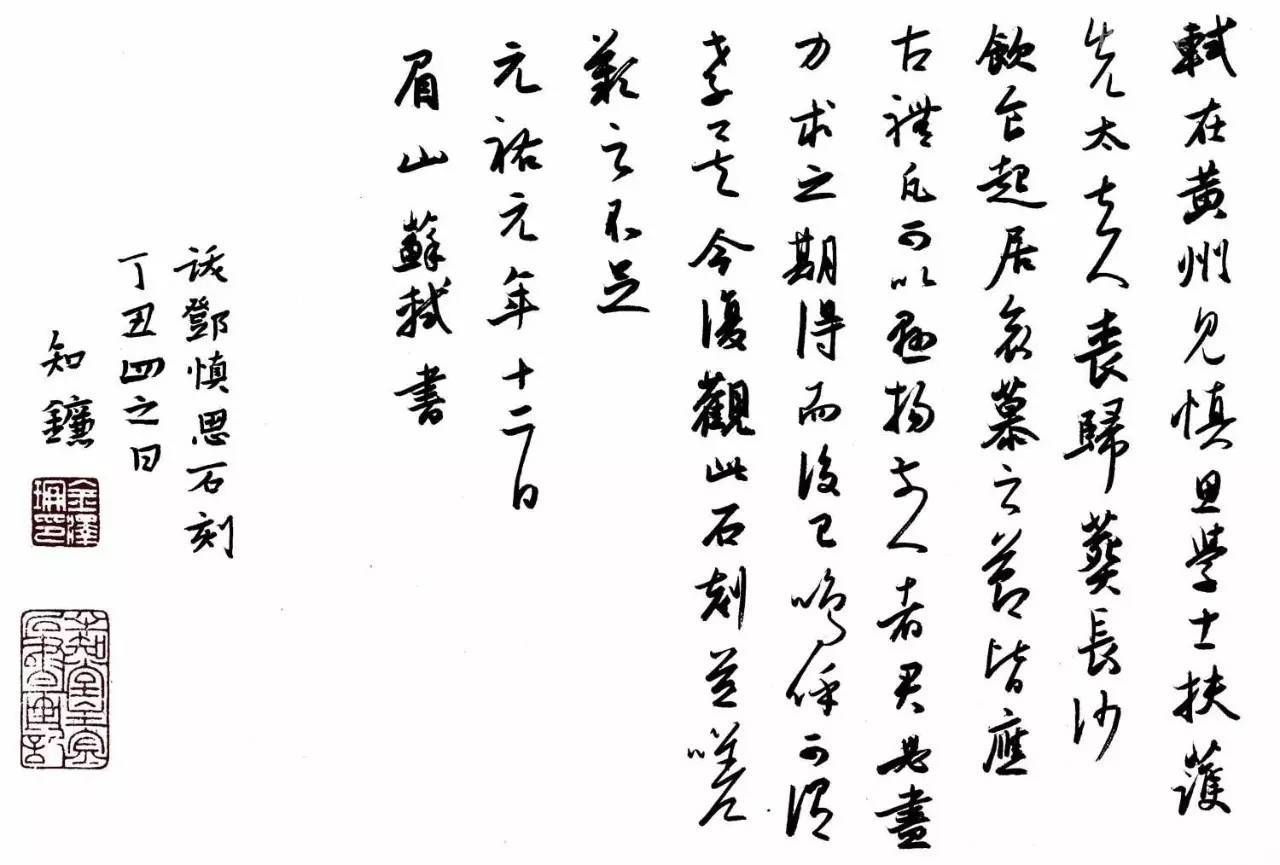 軾在黃州見慎思學士扶護
先太夫人喪歸葬長沙
飲食起居哀慕之節皆應
古禮凡可以顯揚夫人者君必盡
力求之期得而後已嗚呼可謂
孝矣今復觀此石刻益嗟
歎之不足
元祐元年十二日
眉山蘇軾書
鄧慎思石刻
丁丑四之日
知鐮